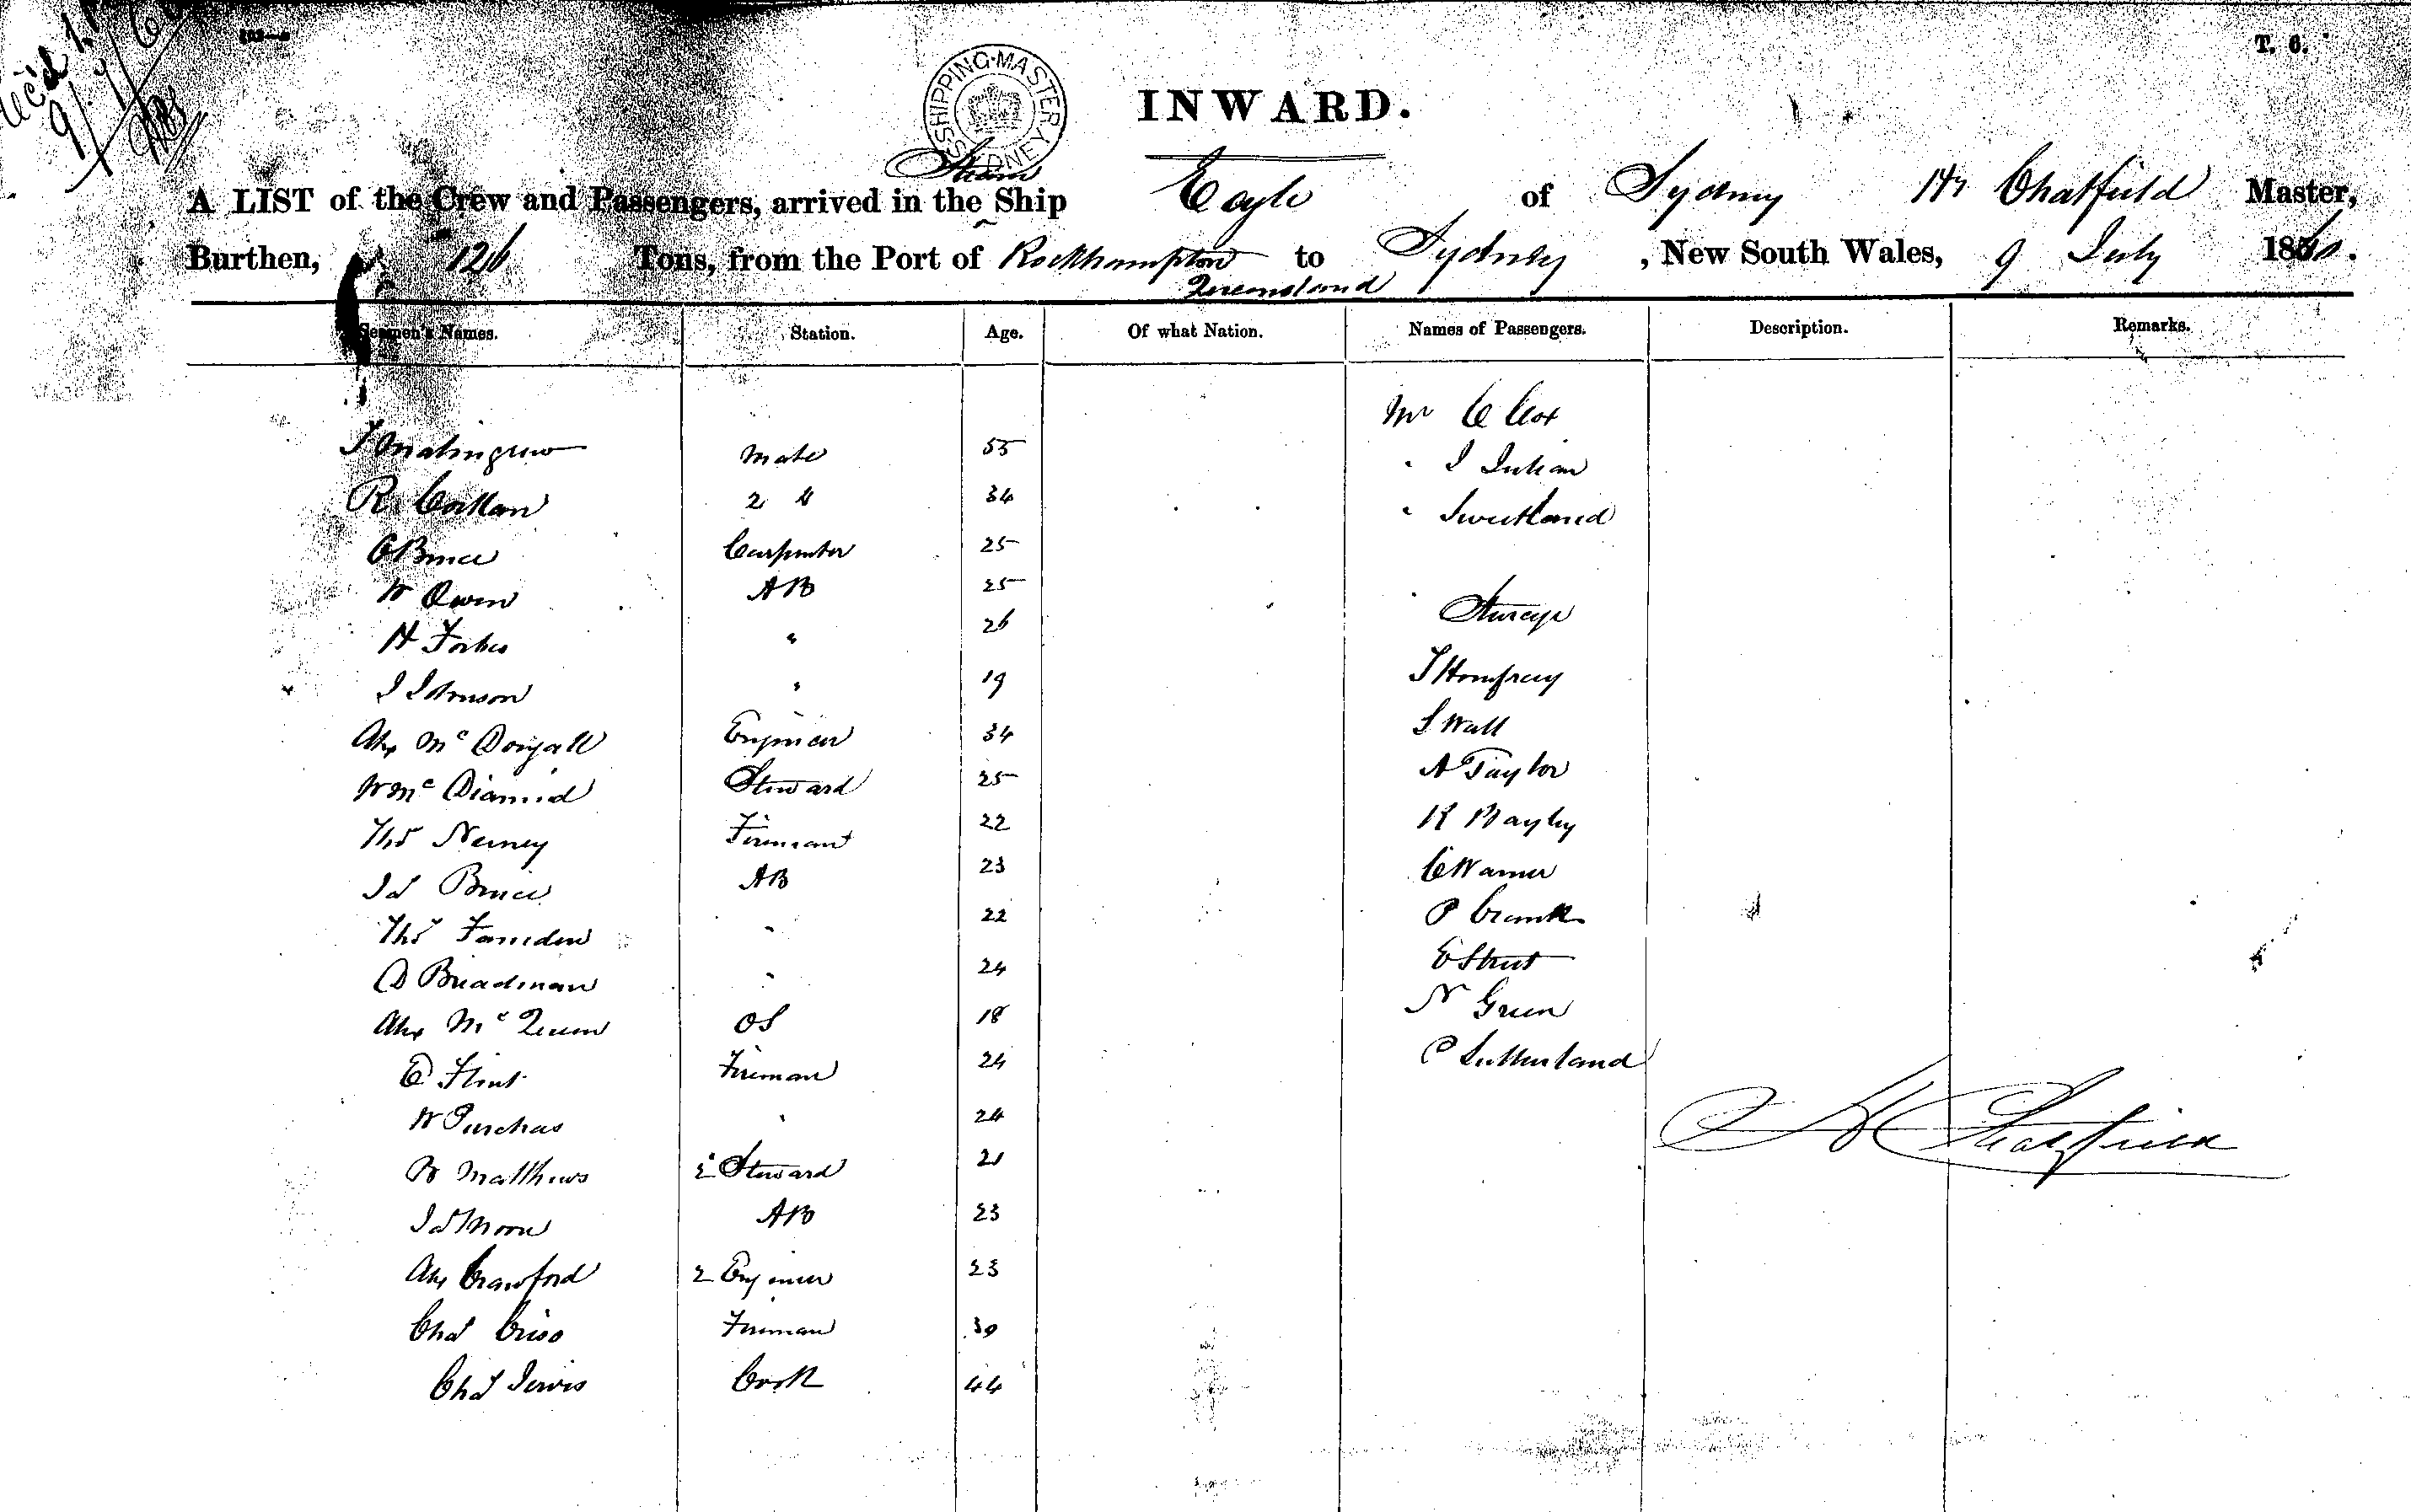 Recd 12
9/7/60
T. 6.
SHIPPING MASTER SYDNEY
INWARD.
A LIST of the Crew and Passengers, arrived in the Steam Ship Eagle of Sydney Hy Chatfield Master,
Burthen, 126 Tons, from the Port of Rockhampton to Sydney, New South Wales, 9 July 1860.
Queensland
Seamen's Names. Station. Age. Of what Nation. Names of Passengers. Description. Remarks.
Mr C Cox
Mate 55 " J Julian
R 2 " 34 " Sweetland
C Bruce Carpenter 25
W Owen AB 25 Sturcye
H Forbes " 26
J Johnson " 19 T Homfray
Alx McDougall Engineer 34 S Wall
W McDiarmid Steward 25 A Taylor
Thos Nerney Fireman 22 R Bayley
Js Bruce AB 23 C Warner
Thos " 22 P
D Breadman " 24 E Strut
Alx McQueen OS 18 N Green
E Flint Fireman 24 P Sutherland
W Purchas " 24
H Chatfield
B Matthews 2 Steward 21
Js Moon AB 23
Alx Crawford 2 Engineer 23
Chas Fireman 30
Chas Jervis Cook 44